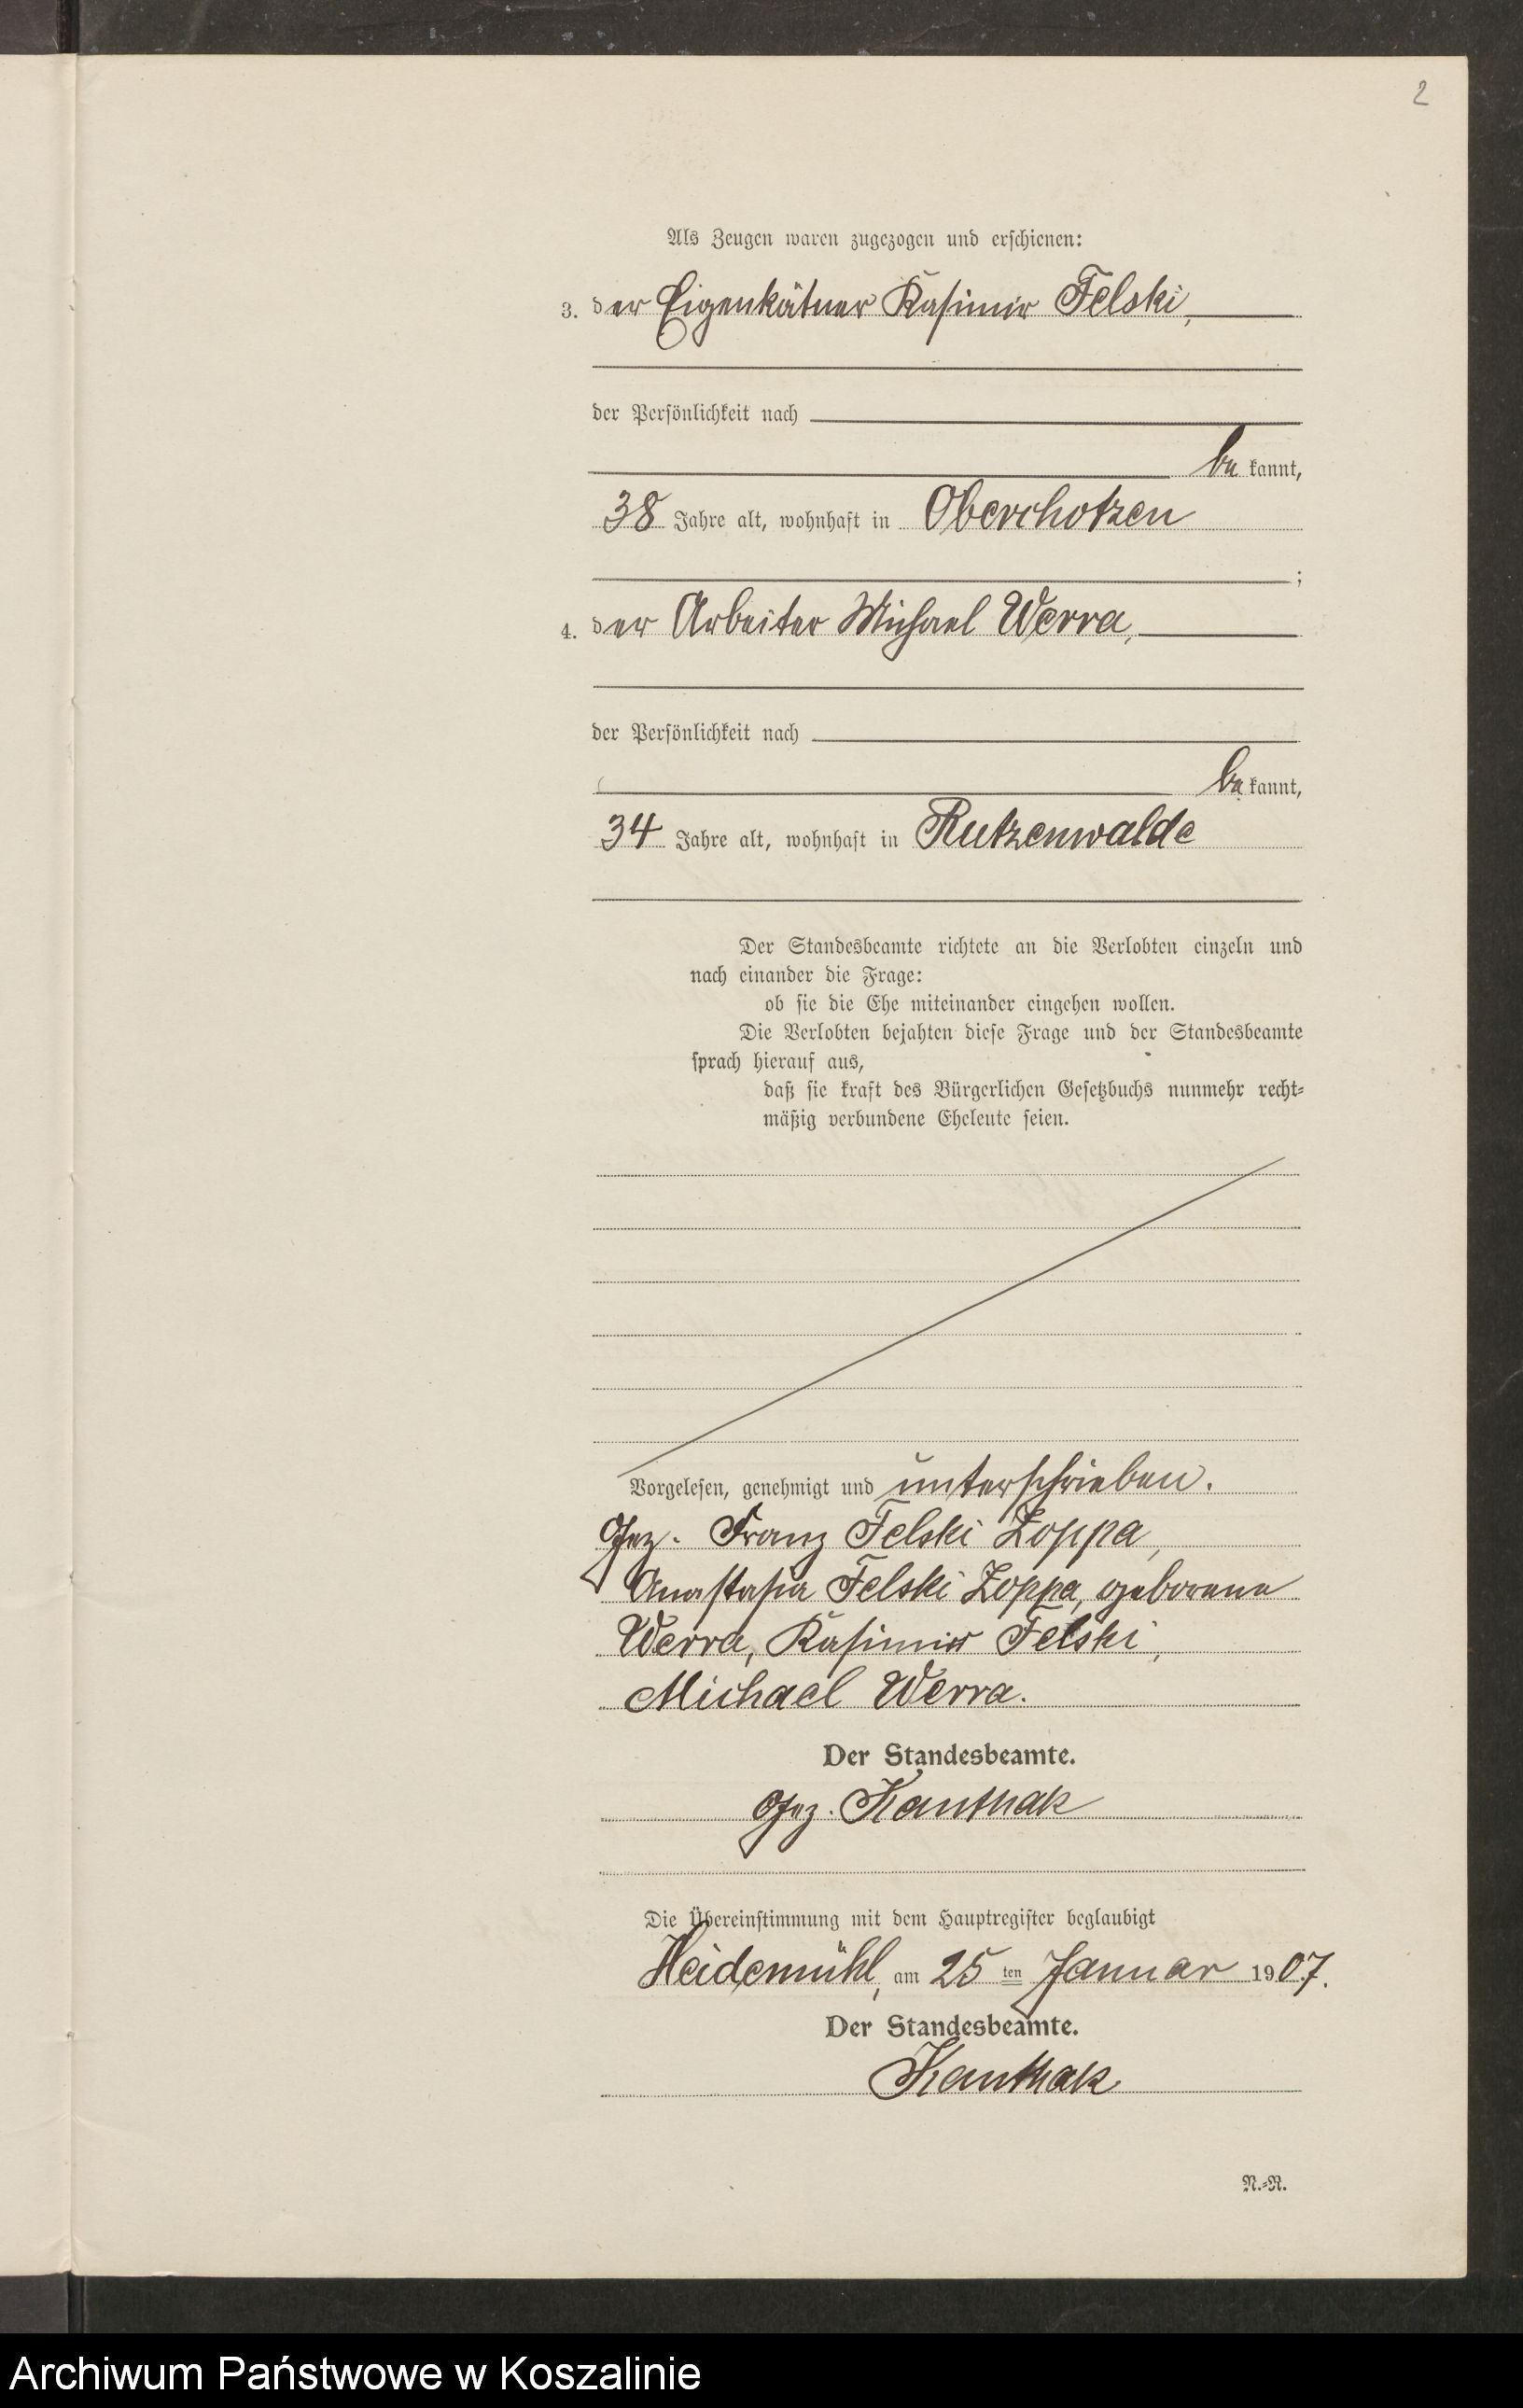 2
Als Zeugen waren zugezogen und erschienen:
3. der Eigenkätner Kasimir Felski,
der Persönlichkeit nach
bekannt,
38 Jahre alt, wohnhaft in Oberchotzen
;
4. der Arbeiter Michael Werra,
der Persönlichkeit nach
bekannt,
34 Jahre alt, wohnhaft in Rutzenwalde
Der Standesbeamte richtete an die Verlobten einzeln und
nach einander die Frage:
ob sie die Ehe miteinander eingehen wollen.
Die Verlobten bejahten diese Frage und der Standesbeamte
sprach hierauf aus,
daß sie kraft des Bürgerlichen Gesetzbuchs nunmehr recht-
mäßig verbundene Eheleute seien.
Vorgelesen, genehmigt und unterschrieben.
Gez. Franz Felski Zoppa,
Anastasia Felski Zoppa, geborene
Werra, Kasimir Felski,
Michael Werra.
Der Standesbeamte.
Gez. Kanthak
Die Übereinstimmung mit dem Hauptregister beglaubigt
Heidemühl, am 25ten Januar 1907.
Der Standesbeamte.
Kanthak
N.-R.
Archiwum Państwowe w Koszalinie